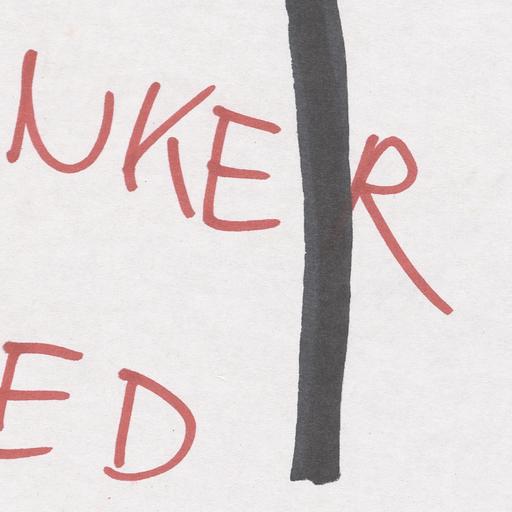 NKER
ED